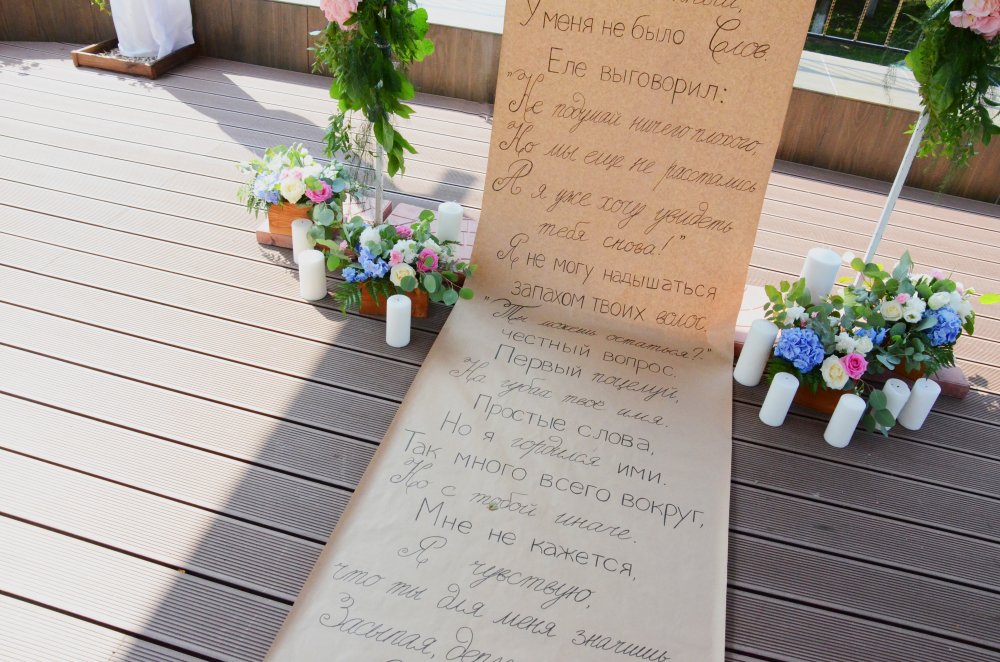 У меня не было Слов.
Еле выговорил:
"Не подумай ничего плохого,
Но мы еще не расстались
А я уже хочу увидеть
тебя снова!"
Я не могу надышаться
запахом твоих волос,
"Ты можешь остаться?"
честный вопрос.
Первый поцелуй,
На губах твоё имя.
Простые слова,
Но я гордился ими.
Так много всего вокруг,
Но с тобой иначе.
Мне не кажется,
Я чувствую,
что ты для меня значишь
Засыпая,